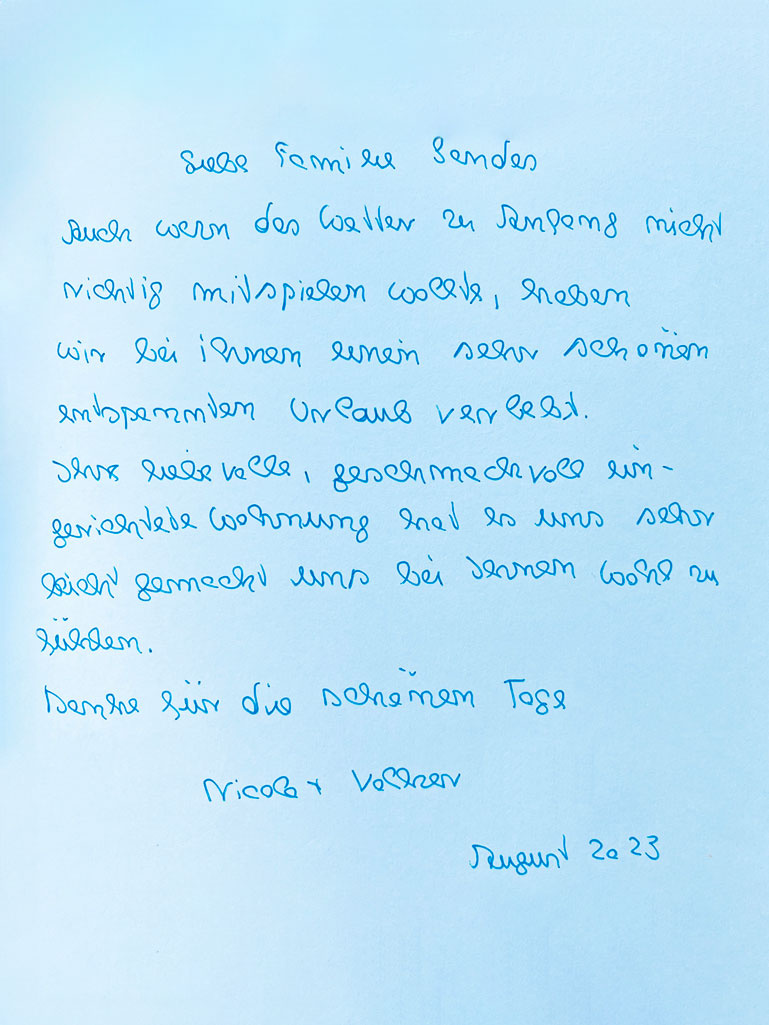 Liebe Familie Sander
Auch wenn das Wetter zu Anfang nicht
richtig mitspielen wollte, haben
wir bei ihnen einen sehr schönen
entspannten Urlaub verlebt.
Ihre liebevolle, geschmackvoll ein-
gerichtete Wohnung hat es uns sehr
leicht gemacht uns bei Ihnen wohl zu
fühlen.
Danke für die schönen Tage
Nicola + Volker
August 2023